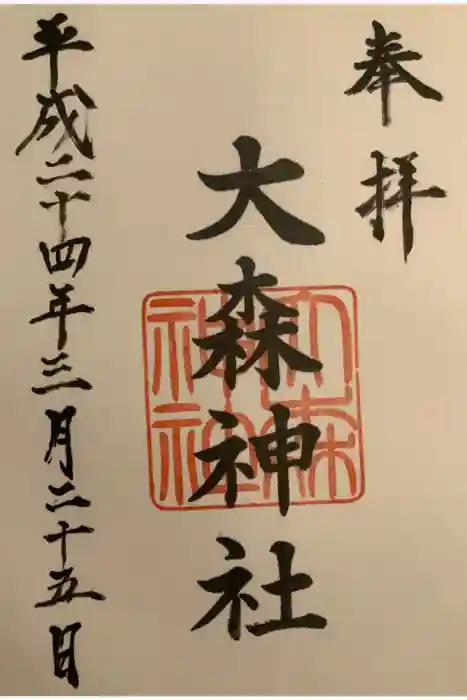 奉拝
大森神社
大森神社
平成二十四年三月二十五日